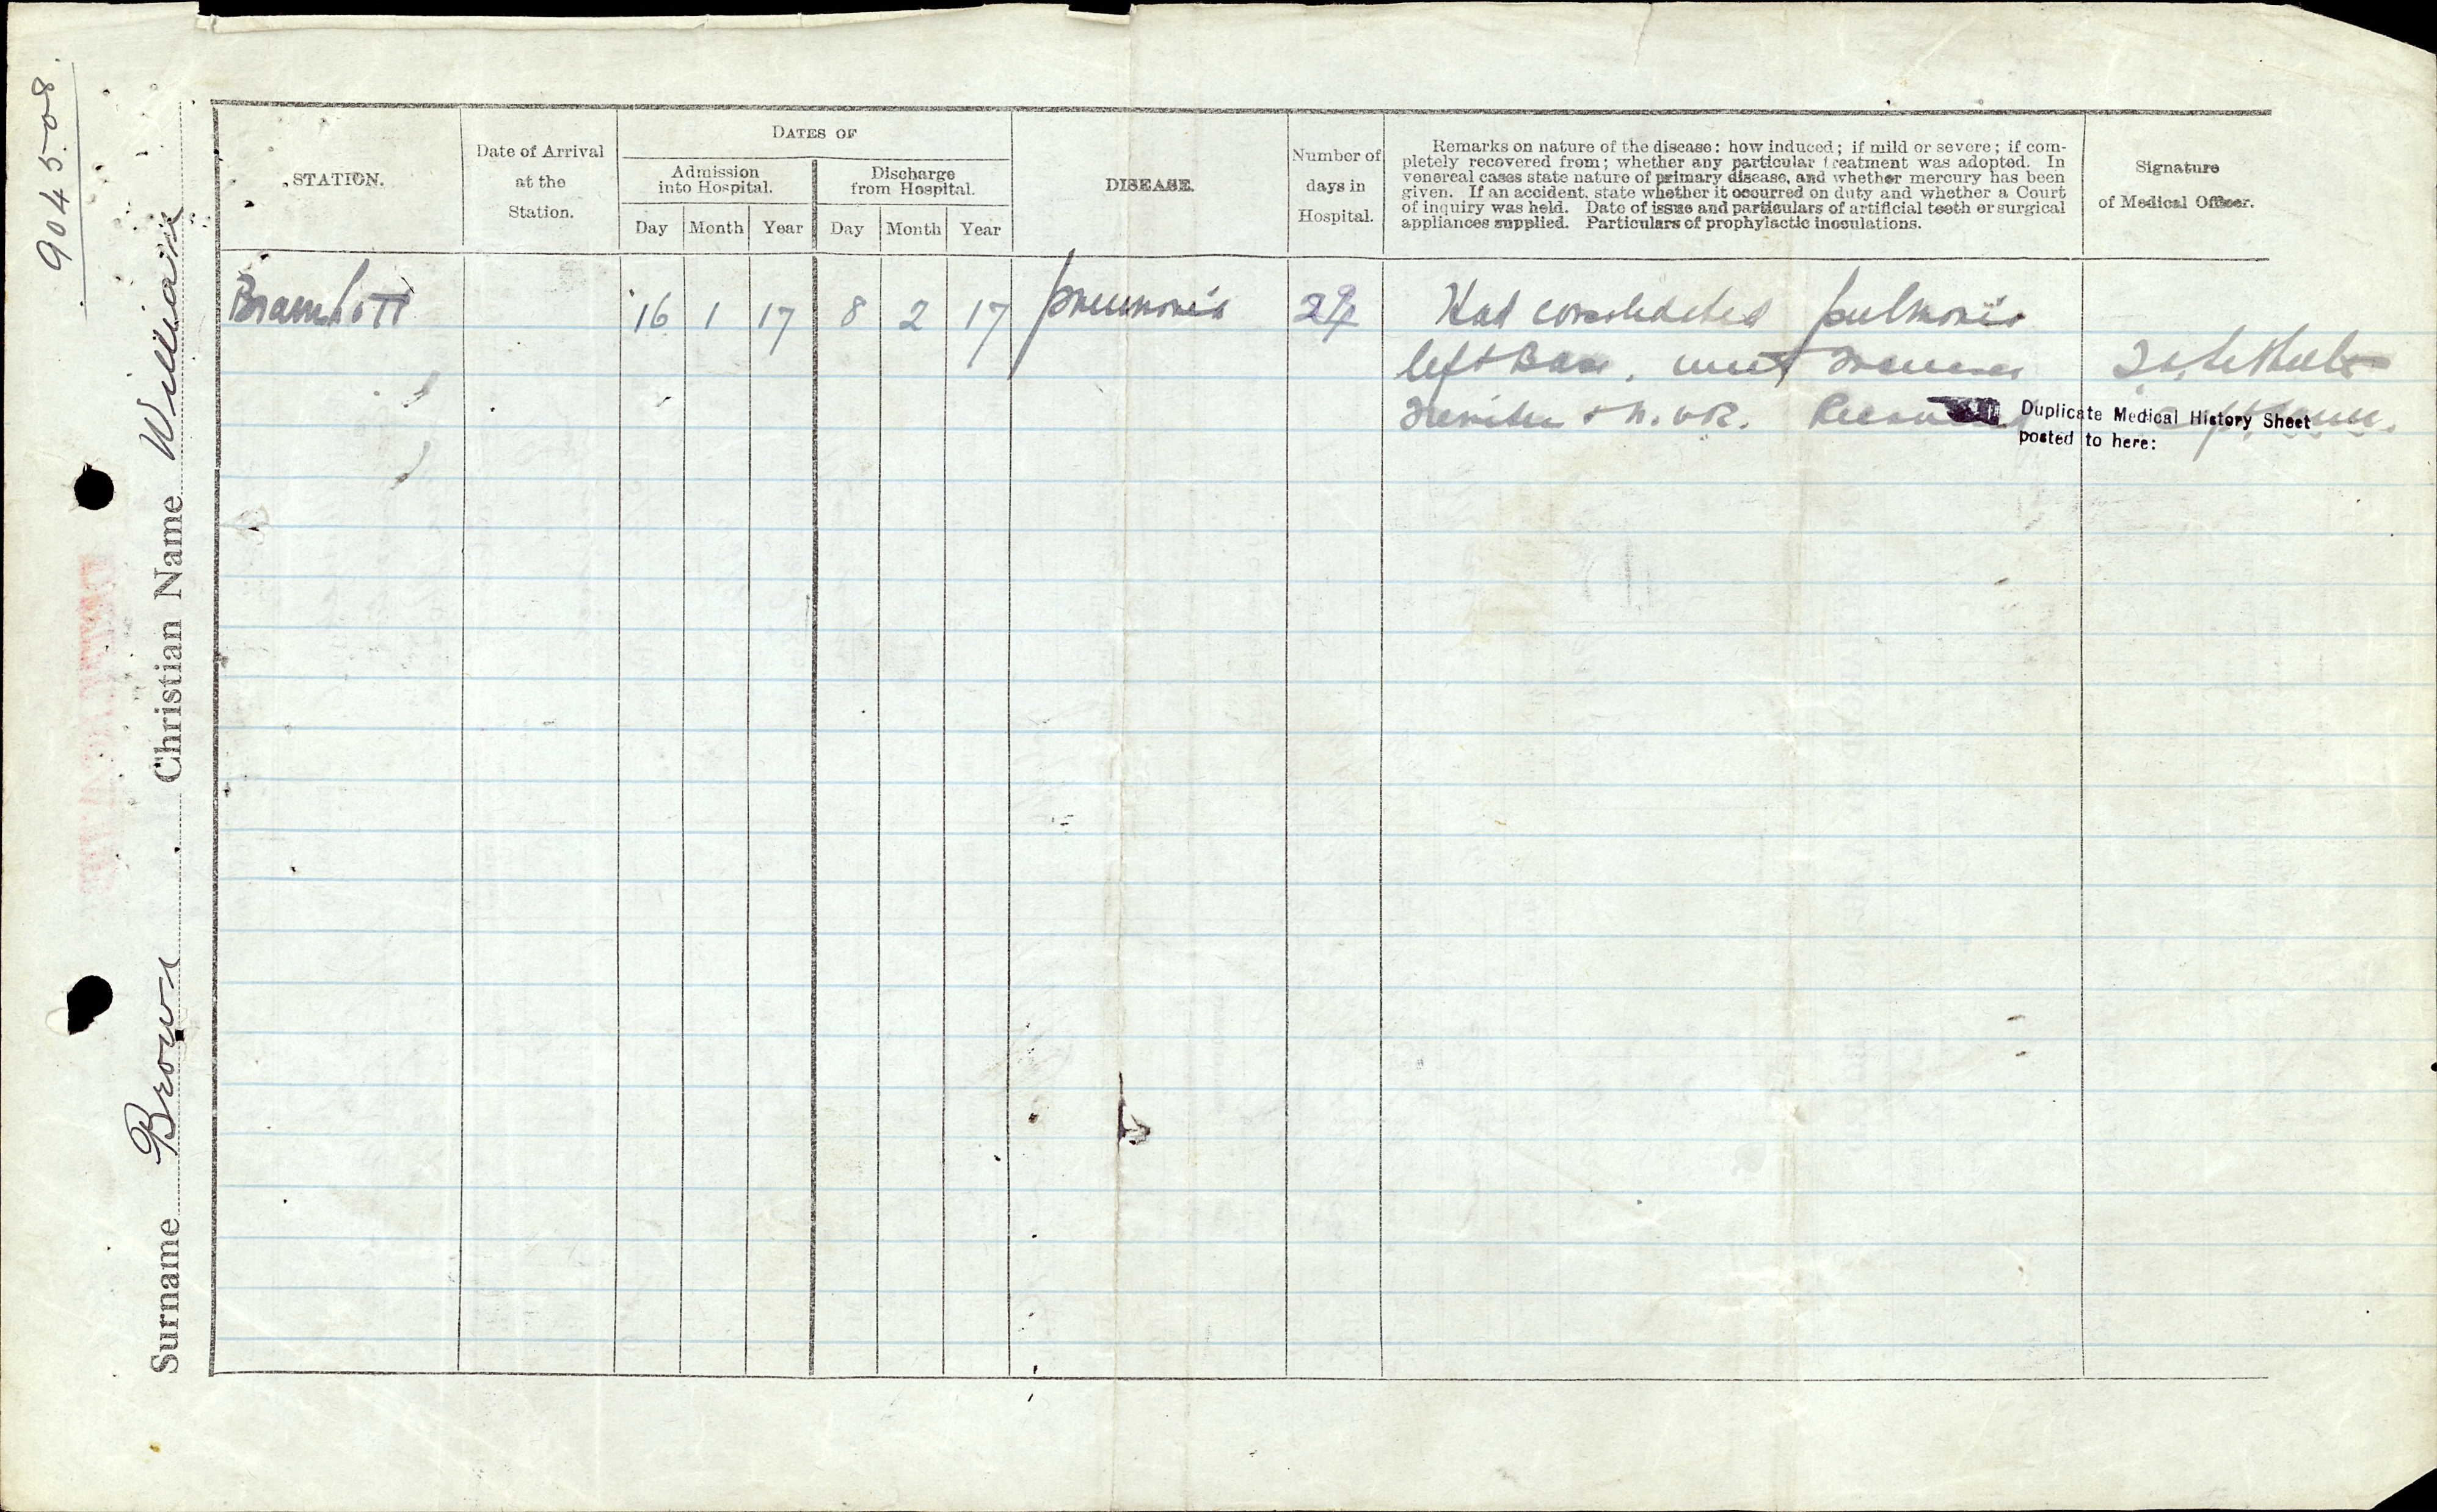 904508.
Surname Brown Christian Name William
STATION.
Date of Arrival
at the
Station.
DATES OF
Admission
into Hospital.
Discharge
from Hospital.
Day Month Year Day Month Year
DISEASE.
Number of
days in
Hospital.
Remarks on nature of the disease: how induced; if mild or severe; if com-
pletely recovered from; whether any particular treatment was adopted. In
venereal cases state nature of primary disease, and whether mercury has been
given. If an accident, state whether it occurred on duty and whether a Court
of inquiry was held. Date of issue and particulars of artificial teeth or surgical
appliances supplied. Particulars of prophylactic inoculations.
Signature
of Medical Officer.
Bramshott 16 1 17 8 2 17 pneumonia Had consolidated pulmonis
left Base.
Duplicate Medical History Sheet
posted to here: